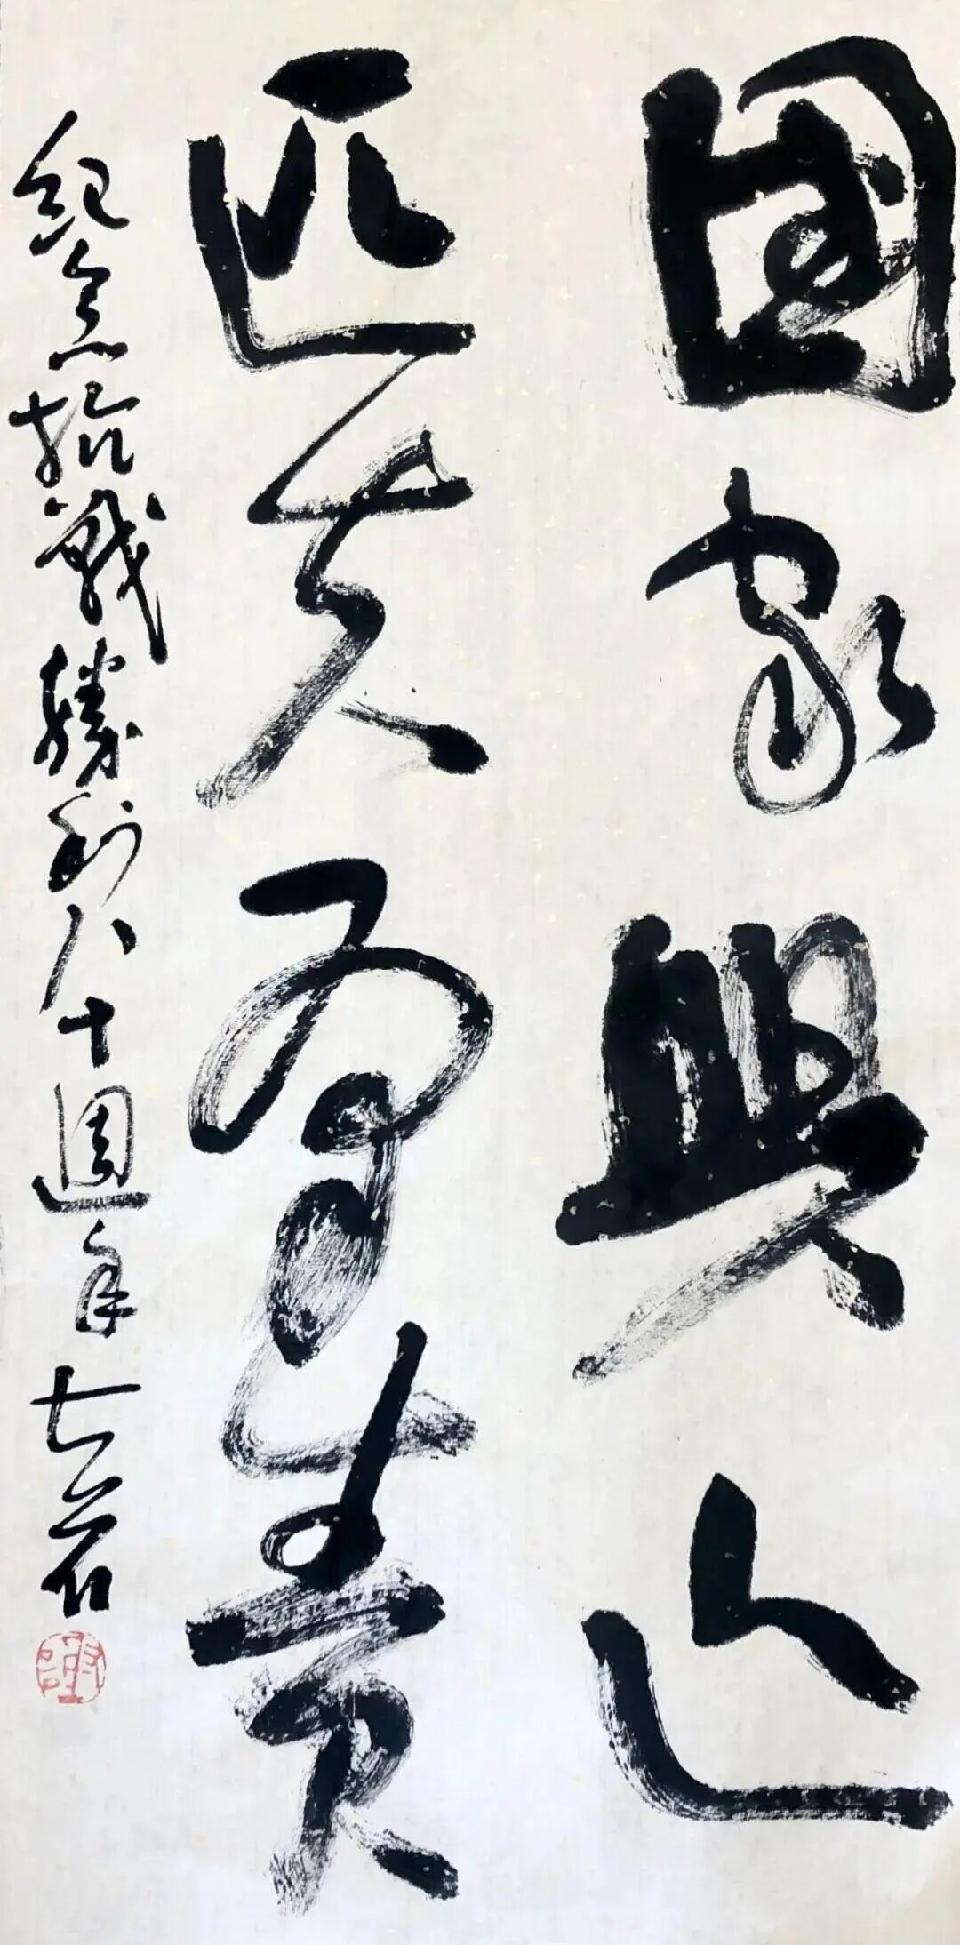 國家興亡
匹夫有責
紀念抗戰勝利八十週年